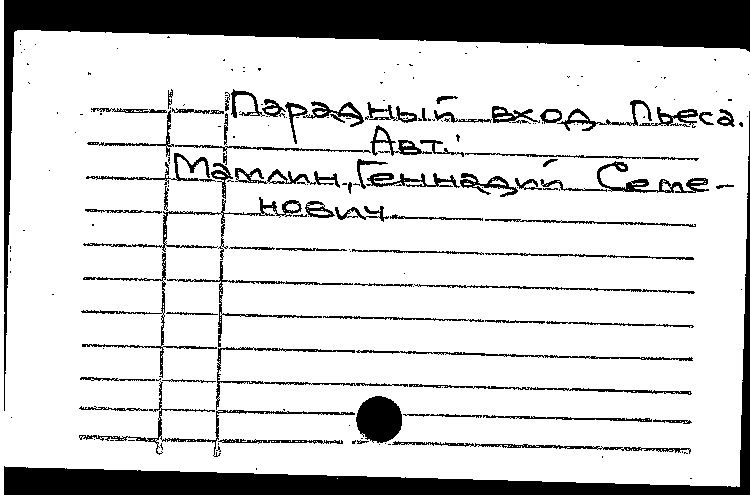 Парадный вход. Пьеса.
Авт.:
Мамлин, Геннадий Семе-
нович.